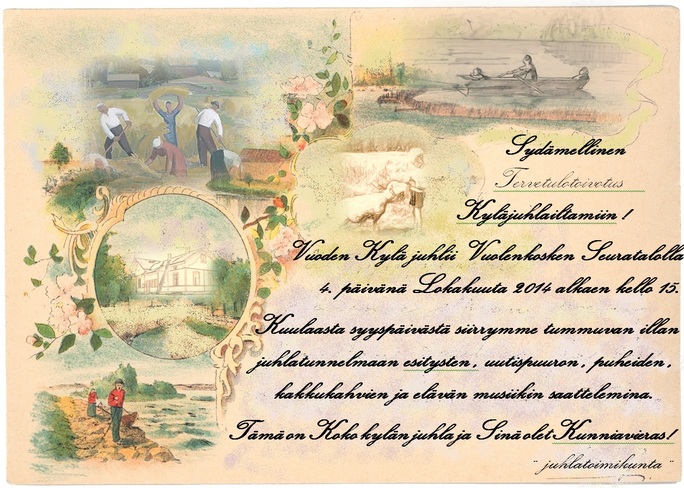 Sydämellinen
Tervetulotoivotus
Kyläjuhlailtamiin !
Vuoden Kylä juhlii Vuolenkosken Seuratalolla
4. päivänä Lokakuuta 2014 alkaen kello 15.
Kuulaasta syyspäivästä siirrymme tummuvan illan
juhlatunnelmaan esitysten, uutispuuron, puheiden,
kakkukahvien ja elävän musiikin saattelemina.
Tämä on Koko kylän juhla ja Sinä olet Kunniavieras!
" juhlatoimikunta "